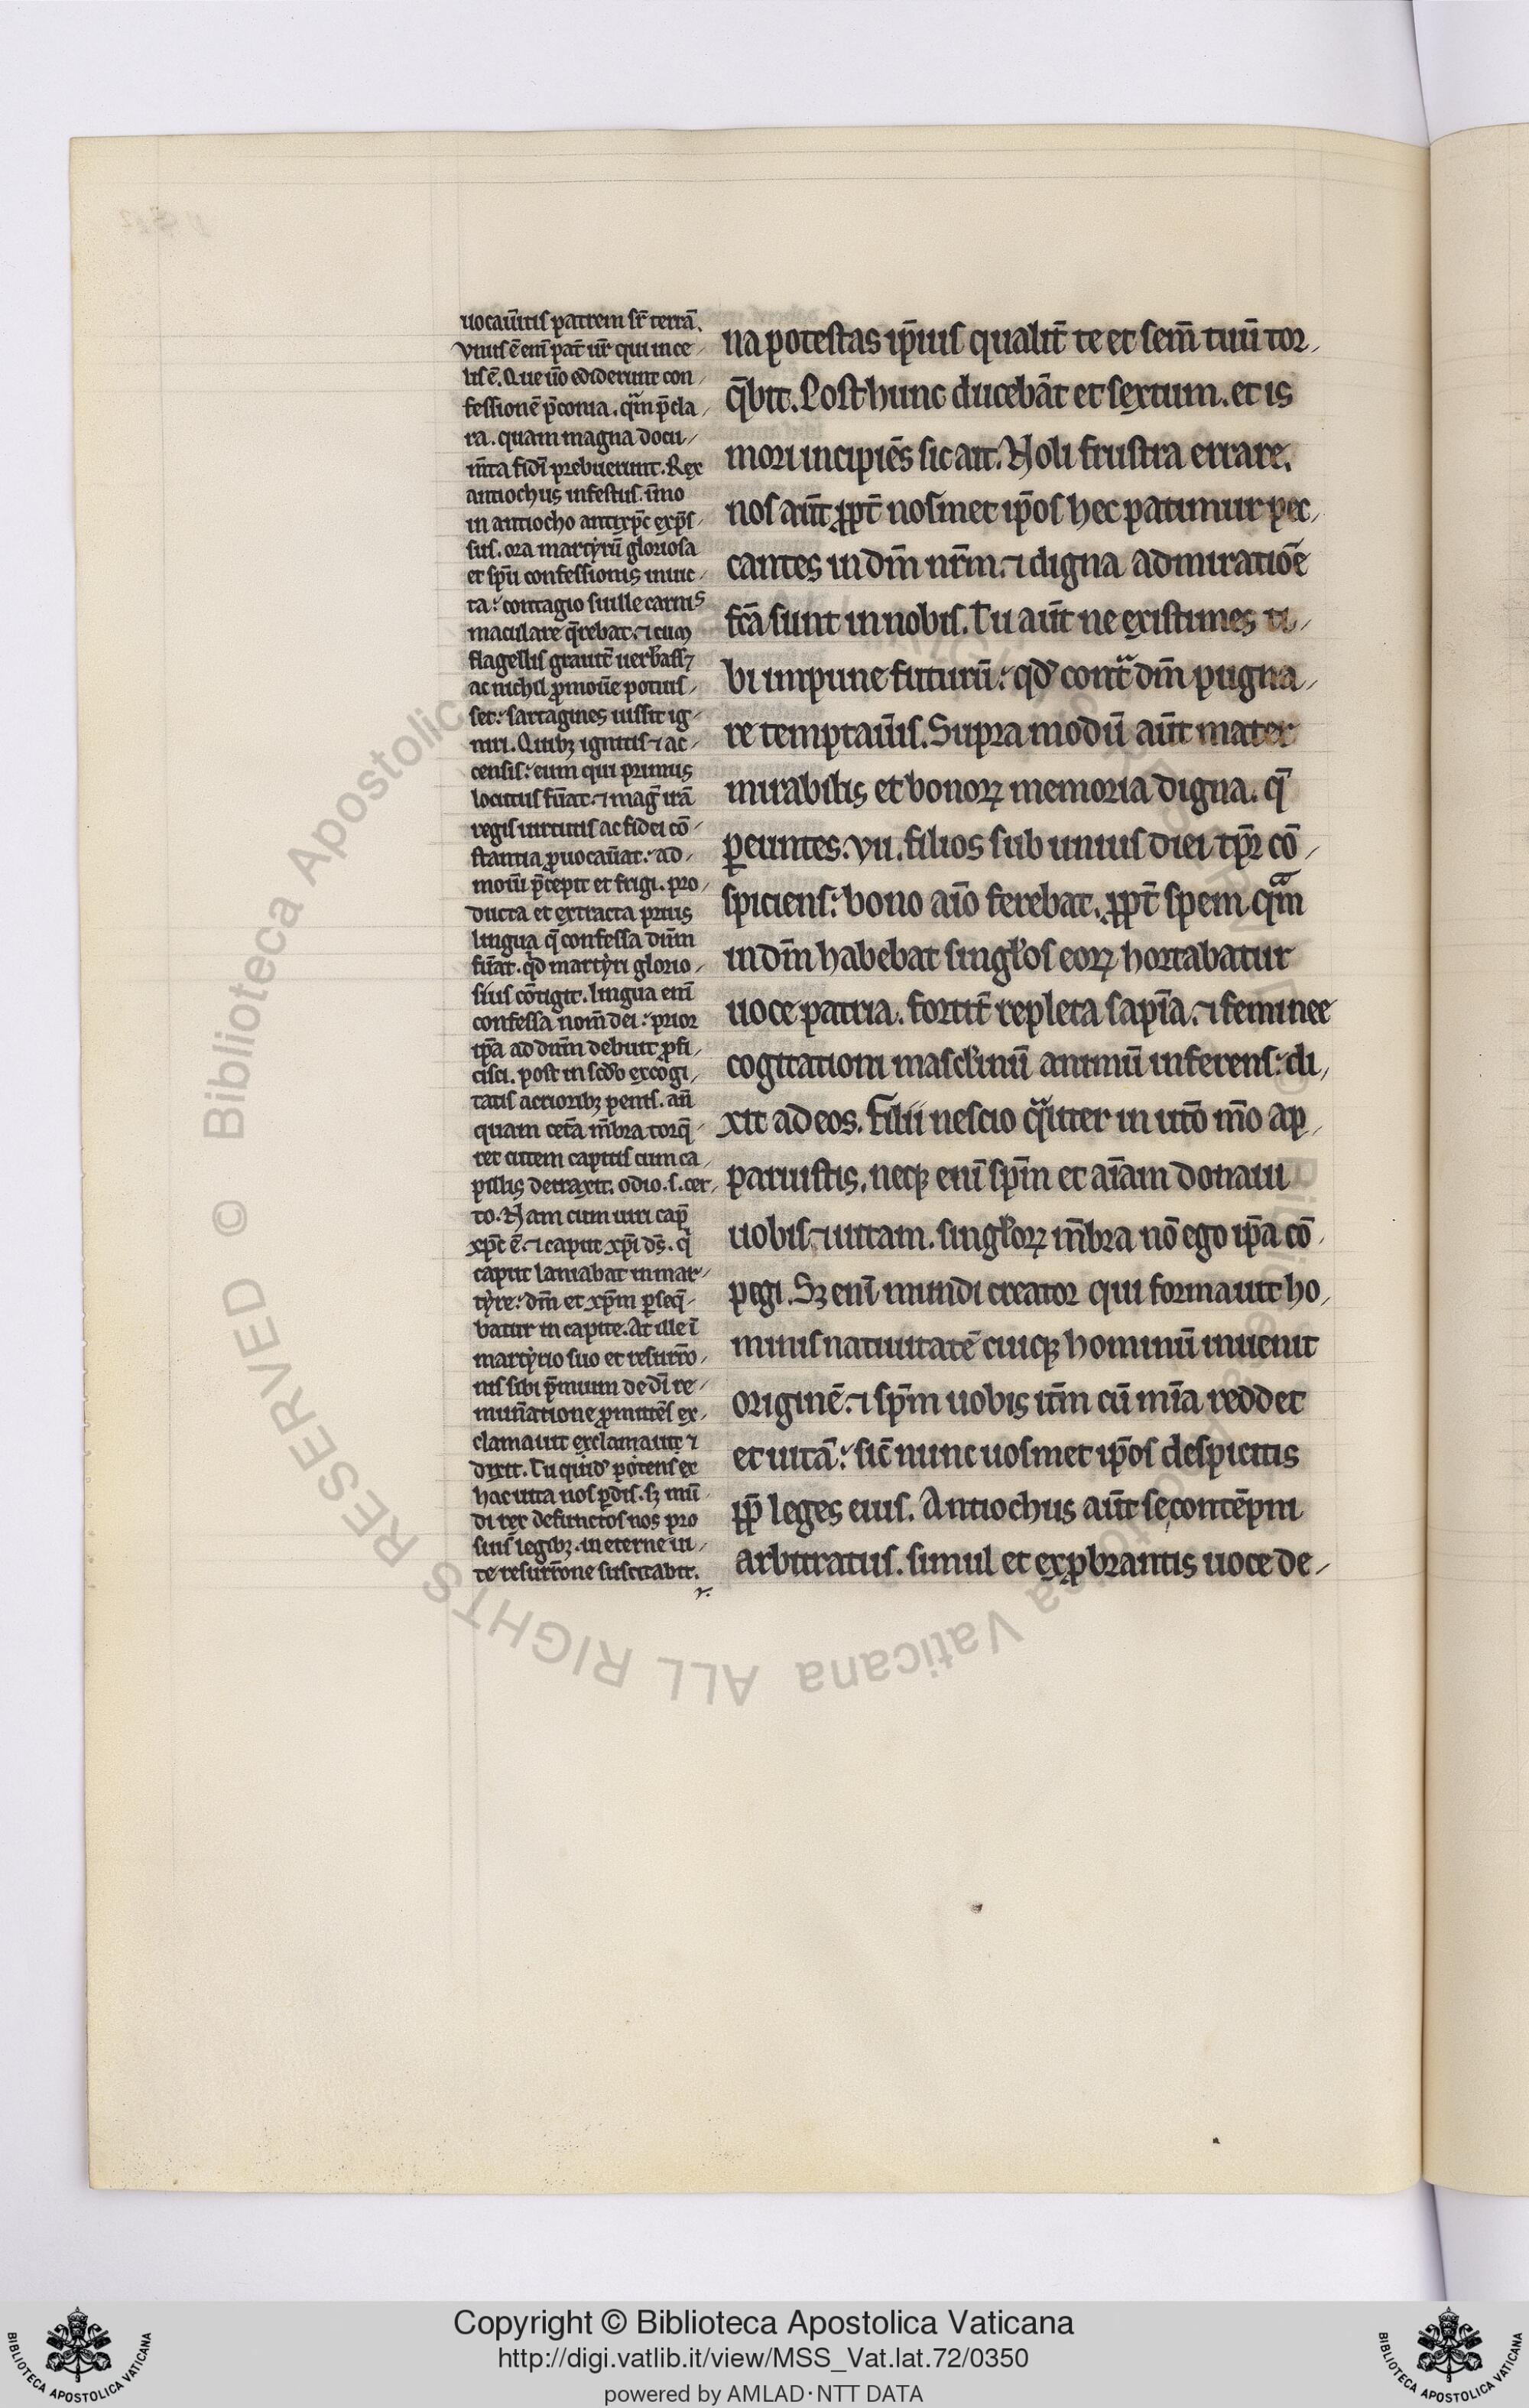 uocaũitis patrem sr̃ terrã.
vnus ẽ enĩ pat̃ ur̃ qui in ce
lis ẽ. Que ũo ediderunt con
fessionẽ p̃conia. qm̃ p̃cla
ra. quam magna docu
m̃ta fidei prebuerunt. Rex
antiochus infestus. ĩmo
in antiocho antixp̃c exp̃s
sus. ora martyrũ gloriosa
et sp̃u confessionis inuic
ta: contagio suille carnis
maculare q̃rebat. ⁊ cum
flagellis grauit̃ uerberass⁊
ac nichil ꝓmouẽ potuis
set: sartagines iussit ig
niri. Quibꝫ ignitis ⁊ ac
censis: eum qui primus
locutus fũat. ⁊ mag̃ irã
regis uirtutis ac fidei cõ
stantia ꝓuocaũat: ad
moũi p̃cepit et frigi. pro
ducta et extracta prius
lingua q̃ confessa dñm
fũat. qd̃ martyri glorio
sius cõtigit. lingua enĩ
confessa nom̃ dei: prior
ip̃a ad dñm debuit ꝓfi
cisci. post in sc̃do excogi
tatis acrioribꝫ penis. añ
quam cet̃a m̃bra torq̃
ret cutem capitis cum ca
pillis detraxit. odio .s. cer
to. Nam cum uiri cap̃
xp̃c ẽ. ⁊ caput xp̃i ds̃. q̃
caput laniabat in mar
tyre: dm̃ et xp̃m ꝑseq̃
batur in capite. At ille ĩ
martyrio suo et resurr̃o
nis sibi p̃mium de dĩ re
mũatione ꝓmittẽs ex
clamauit exclamauit ⁊
dixit. Tu quid̃ potens ex
hac uita nos ꝑdis. sꝫ mũ
di rex defunctos nos pro
suis legibꝫ. in eterne ui
te resurr̃one suscitabit.
r.
na potestas ip̃ius qualit̃ te et sem̃ tuũ tor
q̃bit. Post hunc ducebãt et sextum. et is
mori incipiẽs sic ait. Noli frustra errare.
nos aũt ꝓpt̃ nosmet ip̃os hec patimur pec
cantes in dm̃ nr̃m. ⁊ digna admiratiõe
fc̃a sunt in nobis. Tu aũt ne existimes ti
bi impune futurũ: qd̃ cont̃ dm̃ pugna
re temptaũis. Supra modũ aũt mater
mirabilis et bonoꝝ memoria digna. q̃
ꝑeuntes .vii. filios sub unius diei tp̃r cõ
spiciens: bono aĩo ferebat. ꝓpt̃ spem qm̃
in dm̃ habebat singłos eoꝝ hortabatur
uoce patria. fortit̃ repleta sapĩa. ⁊ feminee
cogitationi mascłinũ animũ inferens: di
xit ad eos. Filii nescio q̃liter in utõ m̃o ap
paruistis. neqꝫ enĩ sp̃m et aĩam donaui
uobis ⁊ uitam. singłoꝝ m̃bra nõ ego ip̃a cõ
pegi. Sꝫ enĩ mundi creator qui formauit ho
minis natiuitatẽ cuiqꝫ hominũ inuenit
originẽ. ⁊ sp̃m uobis it̃m cũ mĩa reddet
et uitã: sic̃ nunc uosmet ip̃os despicitis
ꝓp̃ leges eius. Antiochus aũt se contẽpni
arbitratus. simul et exꝓbrantis uoce de
Copyright © Biblioteca Apostolica Vaticana
http://digi.vatlib.it/view/MSS_Vat.lat.72/0350
powered by AMLAD·NTT DATA